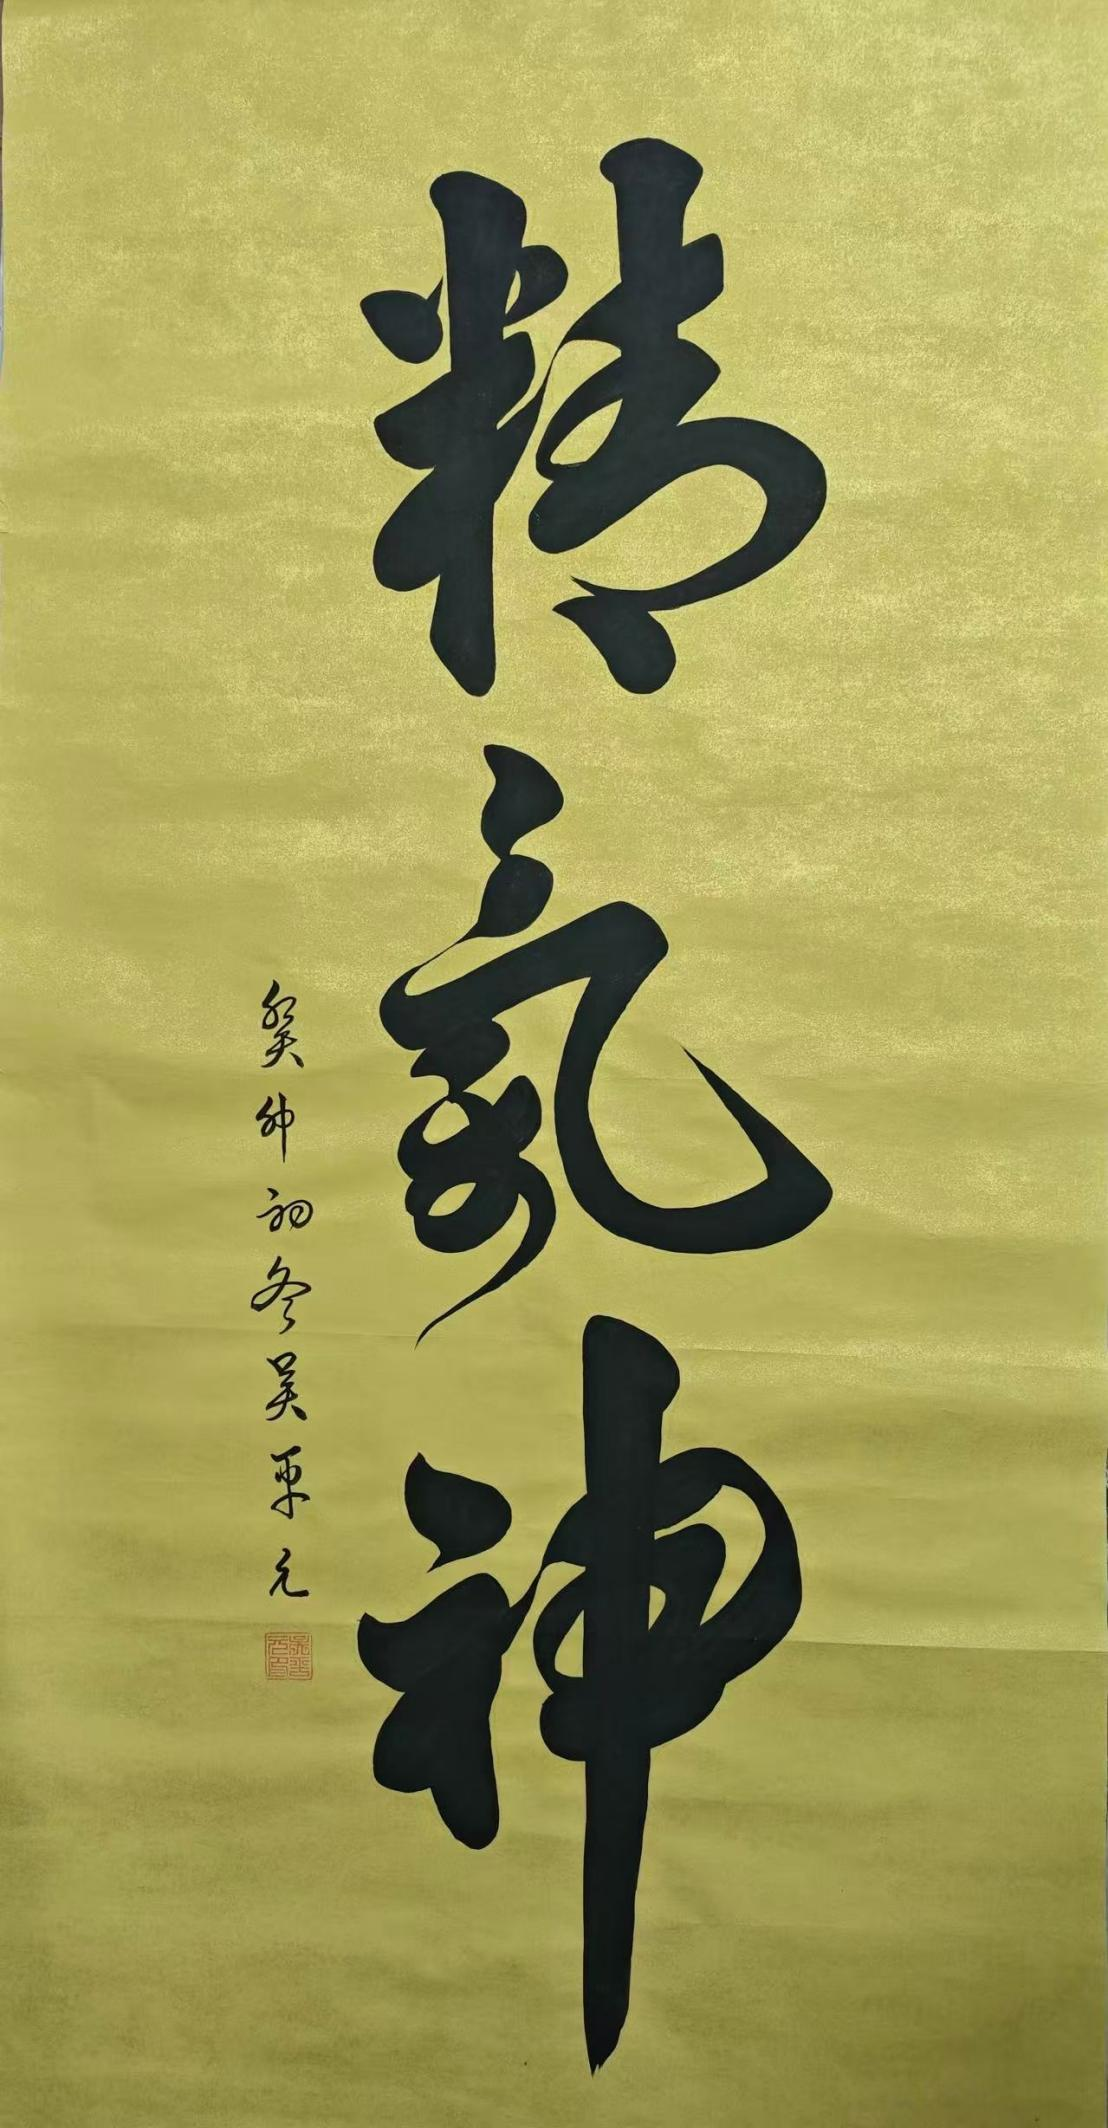 精氣神
癸卯初冬吴平元